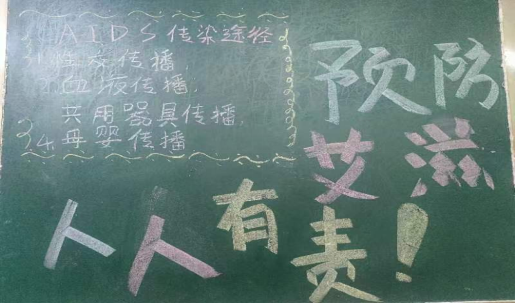 AIDS传染途径
1.性交传播,
血液传播,
共用器具传播,
4.母婴传播
预防
艾滋
人人有责!